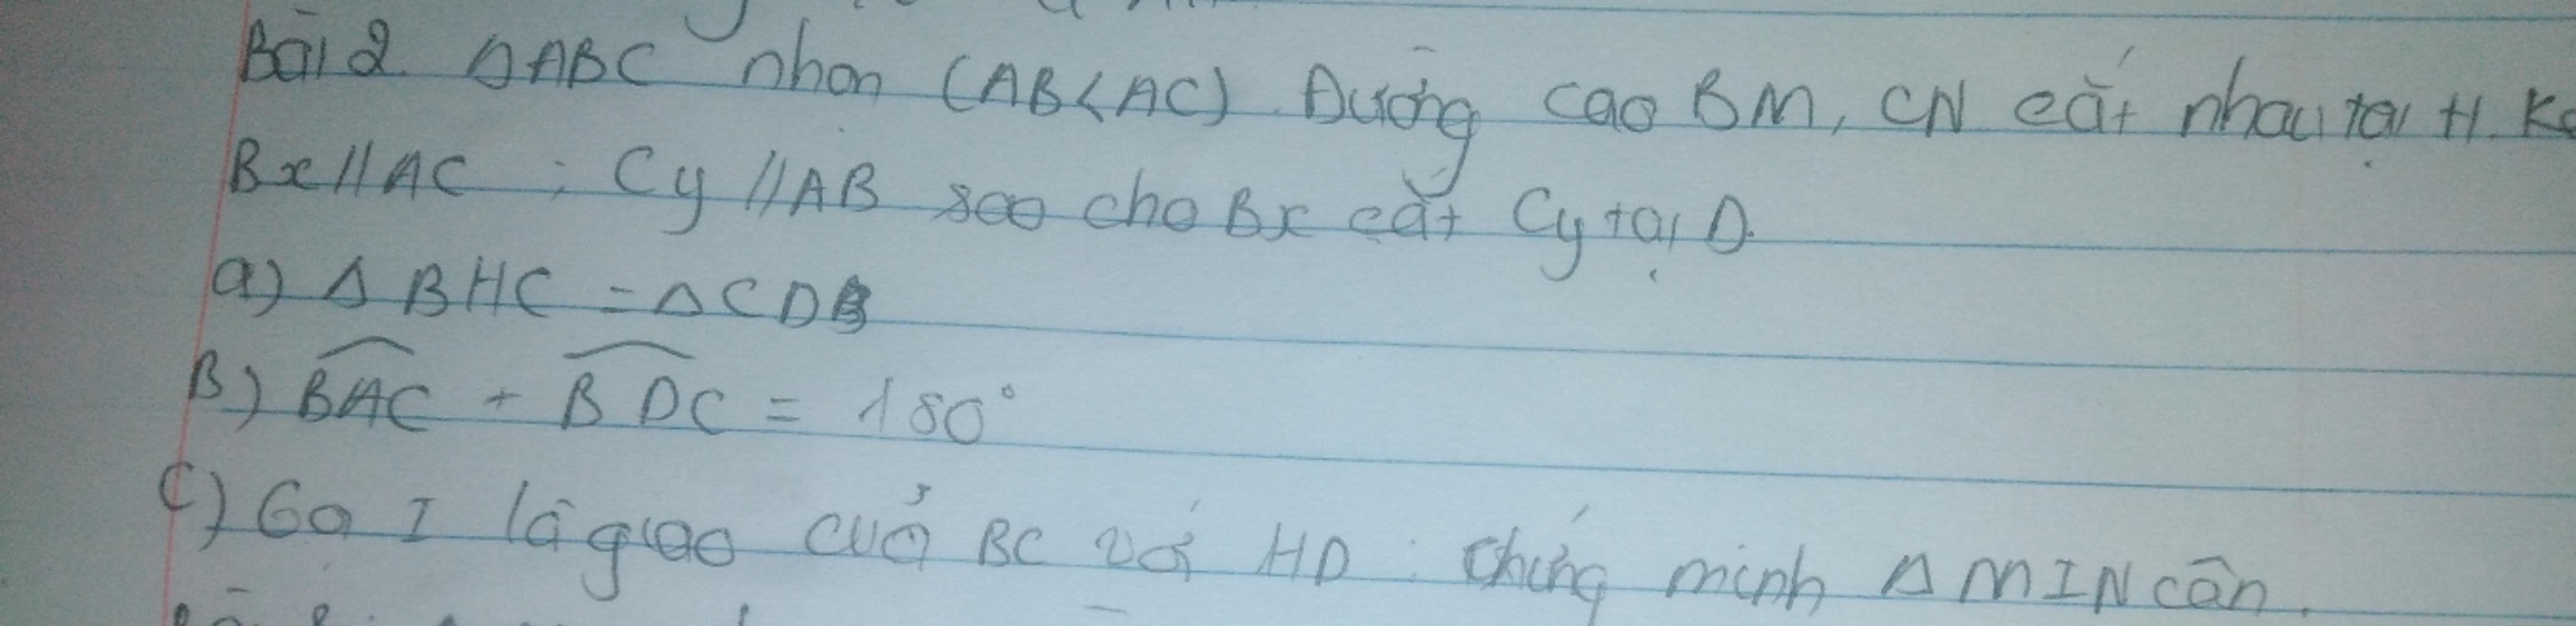 Bài 2. △ABC nhọn (AB<AC). Đường cao BM, CN cắt nhau tại H. Kẻ
Bx//AC ; Cy //AB sao cho Bx cắt Cy tại D.
a) △BHC = △CDB
B) BAC + BDC = 180°
C) Gọi I là giao của BC với HD : chứng minh △MIN cân.